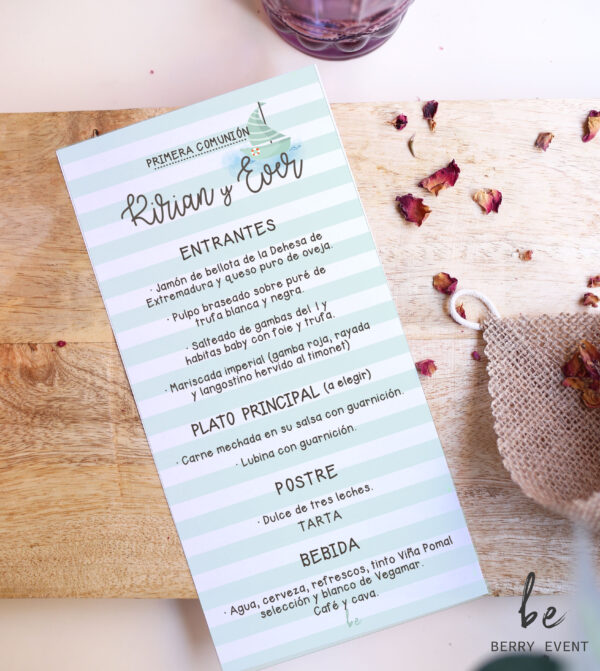 PRIMERA COMUNIÓN
Kirian y Ever
ENTRANTES
· Jamón de bellota de la Dehesa de
Extremadura y queso puro de oveja.
· Pulpo braseado sobre puré de
trufa blanca y negra.
· Salteado de gambas del 1 y
habitas baby con foie y trufa.
· Mariscada imperial (gamba roja, rayada
y langostino hervido al timonet)
PLATO PRINCIPAL (a elegir)
· Carne mechada en su salsa con guarnición.
· Lubina con guarnición.
POSTRE
· Dulce de tres leches.
TARTA
BEBIDA
· Agua, cerveza, refrescos, tinto Viña Pomal
selección y blanco de Vegamar.
Café y cava.
be
be
BERRY EVENT